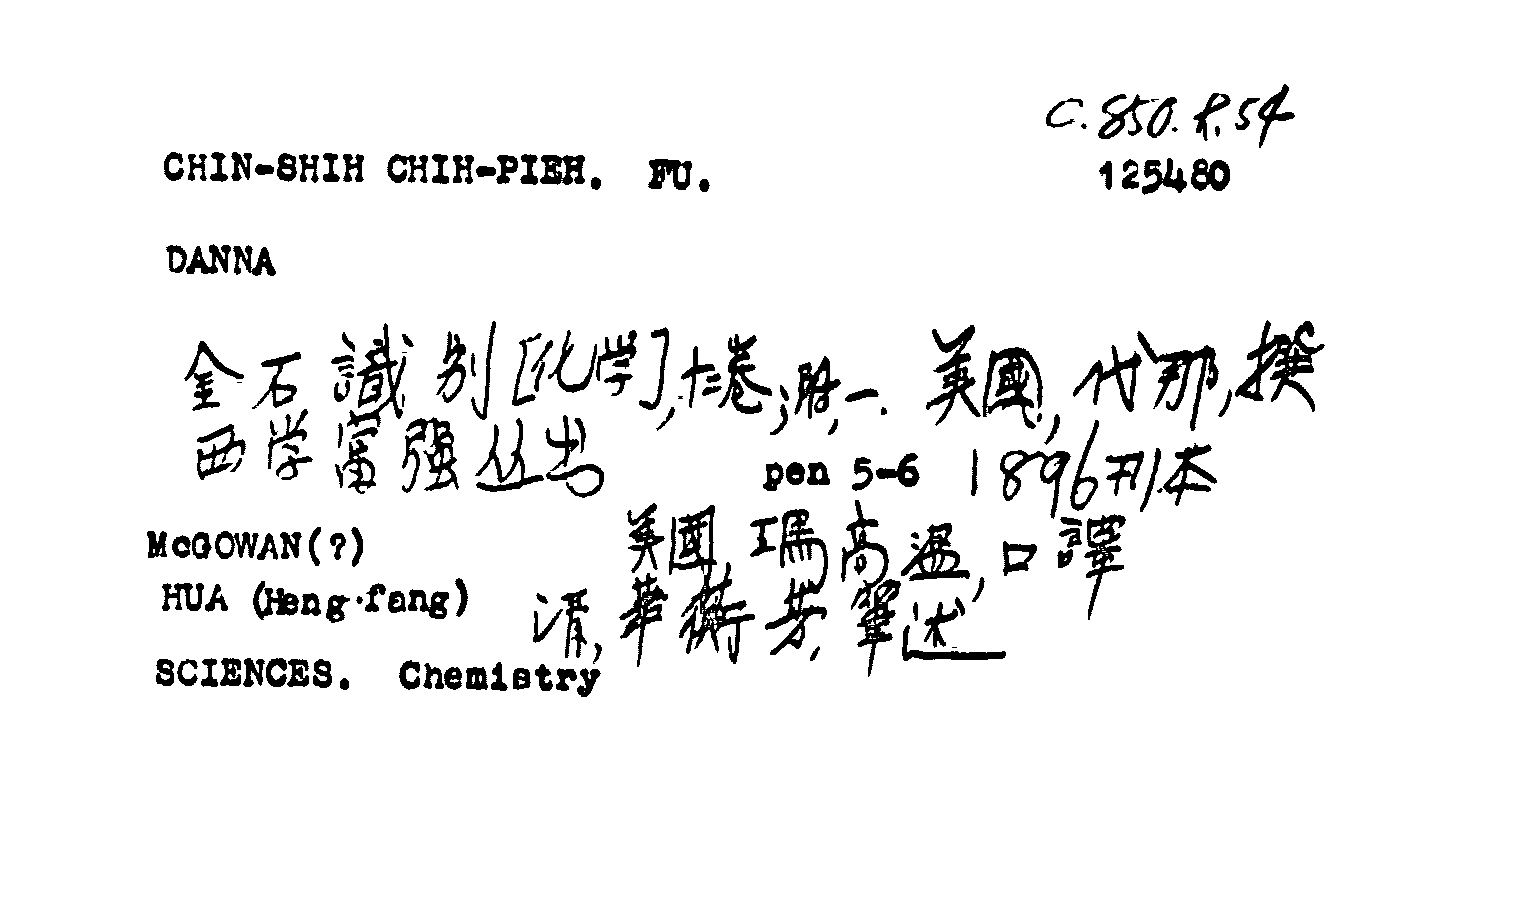 C. 850. P. 54
CHIN-SHIH CHIH-PIEH. FU. 125480
DANNA
金石識別[化学],十二卷;附,一. 美國,代那,撰
西学富强丛书 pen 5-6 1896刊本
McGOWAN(?) 美國,瑪高温,口譯
HUA (Heng-fang) 清,華蘅芳,筆述
SCIENCES. Chemistry